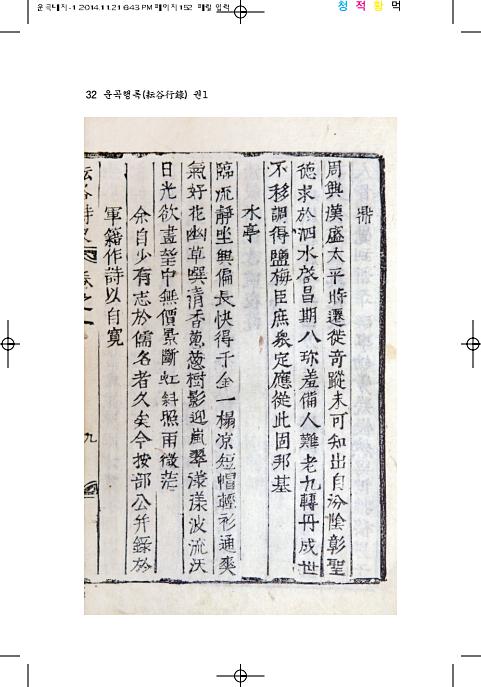 운곡대지-1 2014.11.21 6:43 PM 페이지152 매립 입력
청 적 황 먹
32 운곡행록(耘谷行錄) 권1
鼎
周興漢盛太平時遷徙奇蹤未可知出自汾陰彰聖
德求於泗水啓昌期八珍羞備人難老九轉丹成世
不移調得鹽梅臣庶衆定應從此固邦基
水亭
臨流靜坐興偏長快得千金一榻凉短帽輕衫通爽
氣好花幽草噀清香蔥蔥樹影迎嵐翠漾漾波流沃
日光欲盡望中無價景斷虹斜照雨微茫
余自少有志於儒名者久矣今按部公幷錄於
軍籍作詩以自寬
耘谷詩史 卷之一
九